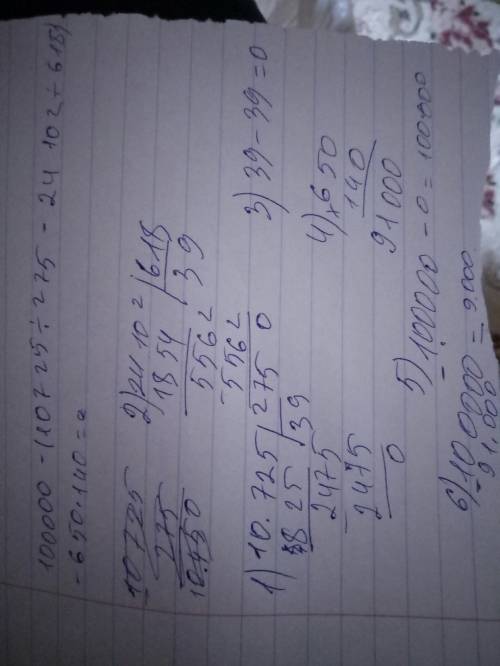 100000 - (10725 ÷ 275 - 24 102 ÷ 618)
- 650 · 140 =
10725
275
10450
2) 24 102 | 618
1854 | 39
5562
5562
0
1) 10.725 | 275
825 | 39
2475
2475
0
3) 39 - 39 = 0
4) × 650
140
91000
5) 100000 - 0 = 100000
6) 100000 = 9000
- 91.000